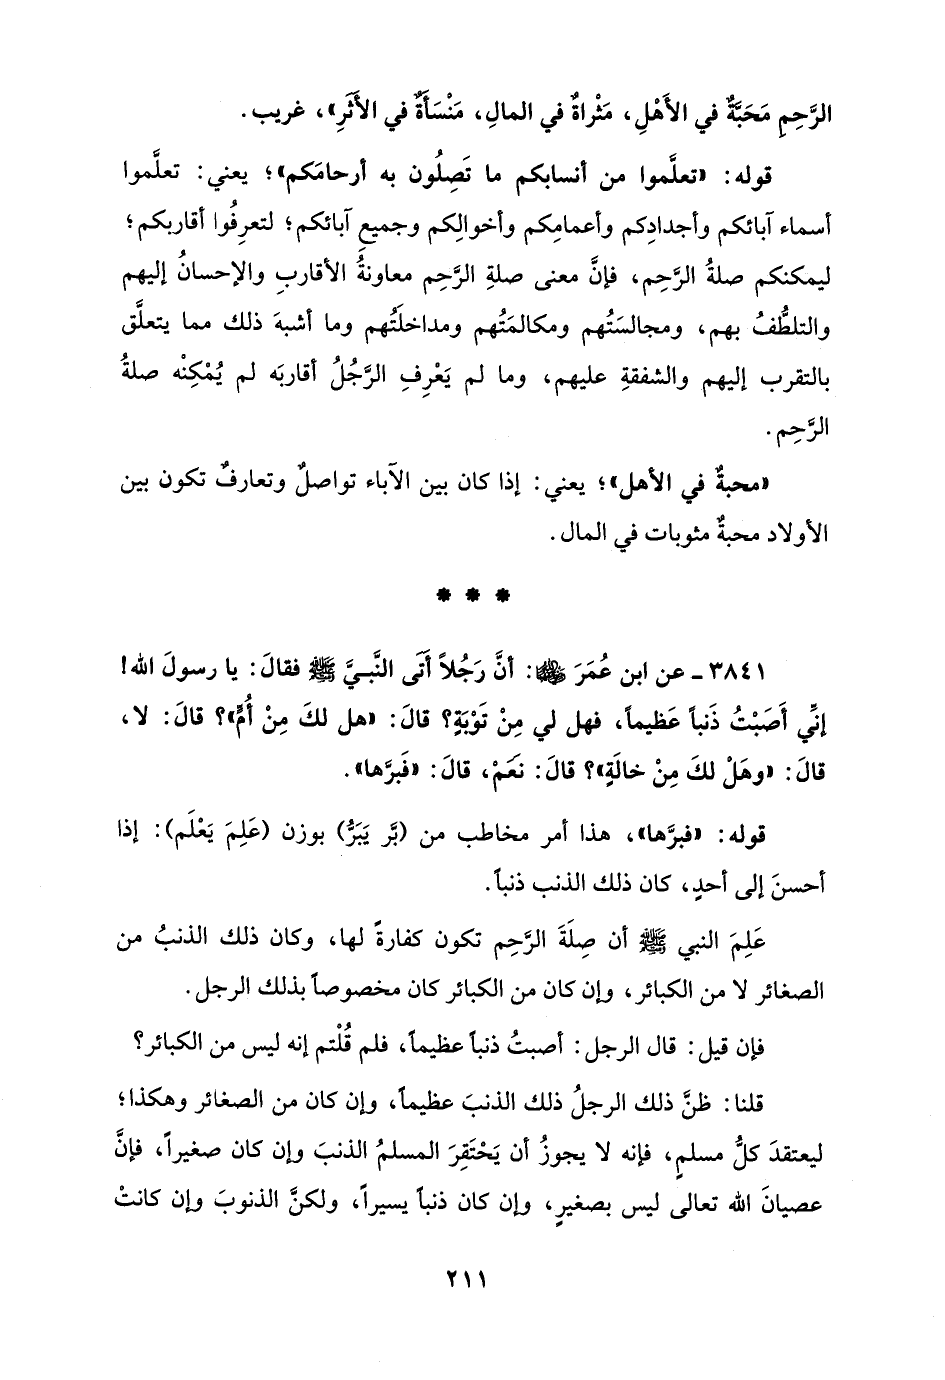 الرَّحِمِ مَحَبَّةٌ في الأَهْلِ، مَثْراةٌ في المالِ، مَنْسَأَةٌ في الأَثَرِ»، غريب.
قوله: «تعلَّموا من أنسابكم ما تَصِلُون به أرحامَكم»؛ يعني: تعلَّموا
أسماء آبائكم وأجدادِكم وأعمامِكم وأخوالِكم وجميعِ آبائكم؛ لتعرِفُوا أقاربكم؛
ليمكنكم صلةُ الرَّحِم، فإنَّ معنى صلةِ الرَّحِم معاونةُ الأقاربِ والإحسانُ إليهم
والتلطُّفُ بهم، ومجالسَتُهم ومكالمَتُهم ومداخلَتُهم وما أشبهَ ذلك مما يتعلَّق
بالتقرب إليهم والشفقةِ عليهم، وما لم يَعْرِفِ الرَّجُلُ أقاربَه لم يُمْكِنْه صلةُ
الرَّحِم.
«محبةٌ في الأهل»؛ يعني: إذا كان بين الآباء تواصلٌ وتعارفٌ تكون بين
الأولاد محبةٌ مثوبات في المال.
* * *
٣٨٤١ ـ عن ابن عُمَرَ ﷺ: أنَّ رَجُلاً أَتَى النَّبيَّ ﷺ فقالَ: يا رسولَ الله!
إنِّي أَصَبْتُ ذَنباً عَظيماً، فهل لي مِنْ تَوْبَةٍ؟ قالَ: «هل لكَ مِنْ أُمٍّ»؟ قالَ: لا،
قالَ: «وهَلْ لكَ مِنْ خالَةٍ»؟ قالَ: نعَمْ، قالَ: «فَبرَّها».
قوله: «فبرَّها»، هذا أمر مخاطب من (بَّر يَبَرُّ) بوزن (عَلِمَ يَعْلَم): إذا
أحسنَ إلى أحدٍ، كان ذلك الذنب ذنباً.
عَلِمَ النبي ﷺ أن صِلَةَ الرَّحِم تكون كفارةً لها، وكان ذلك الذنبُ من
الصغائر لا من الكبائر، وإن كان من الكبائر كان مخصوصاً بذلك الرجل.
فإن قيل: قال الرجل: أصبتُ ذنباً عظيماً، فلم قُلْتم إنه ليس من الكبائر؟
قلنا: ظنَّ ذلك الرجلُ ذلك الذنبَ عظيماً، وإن كان من الصغائر وهكذا؛
ليعتقدَ كلُّ مسلمٍ، فإنه لا يجوزُ أن يَحْتَقِرَ المسلمُ الذنبَ وإن كان صغيراً، فإنَّ
عصيانَ الله تعالى ليس بصغيرٍ، وإن كان ذنباً يسيراً، ولكنَّ الذنوبَ وإن كانتْ
٢١١